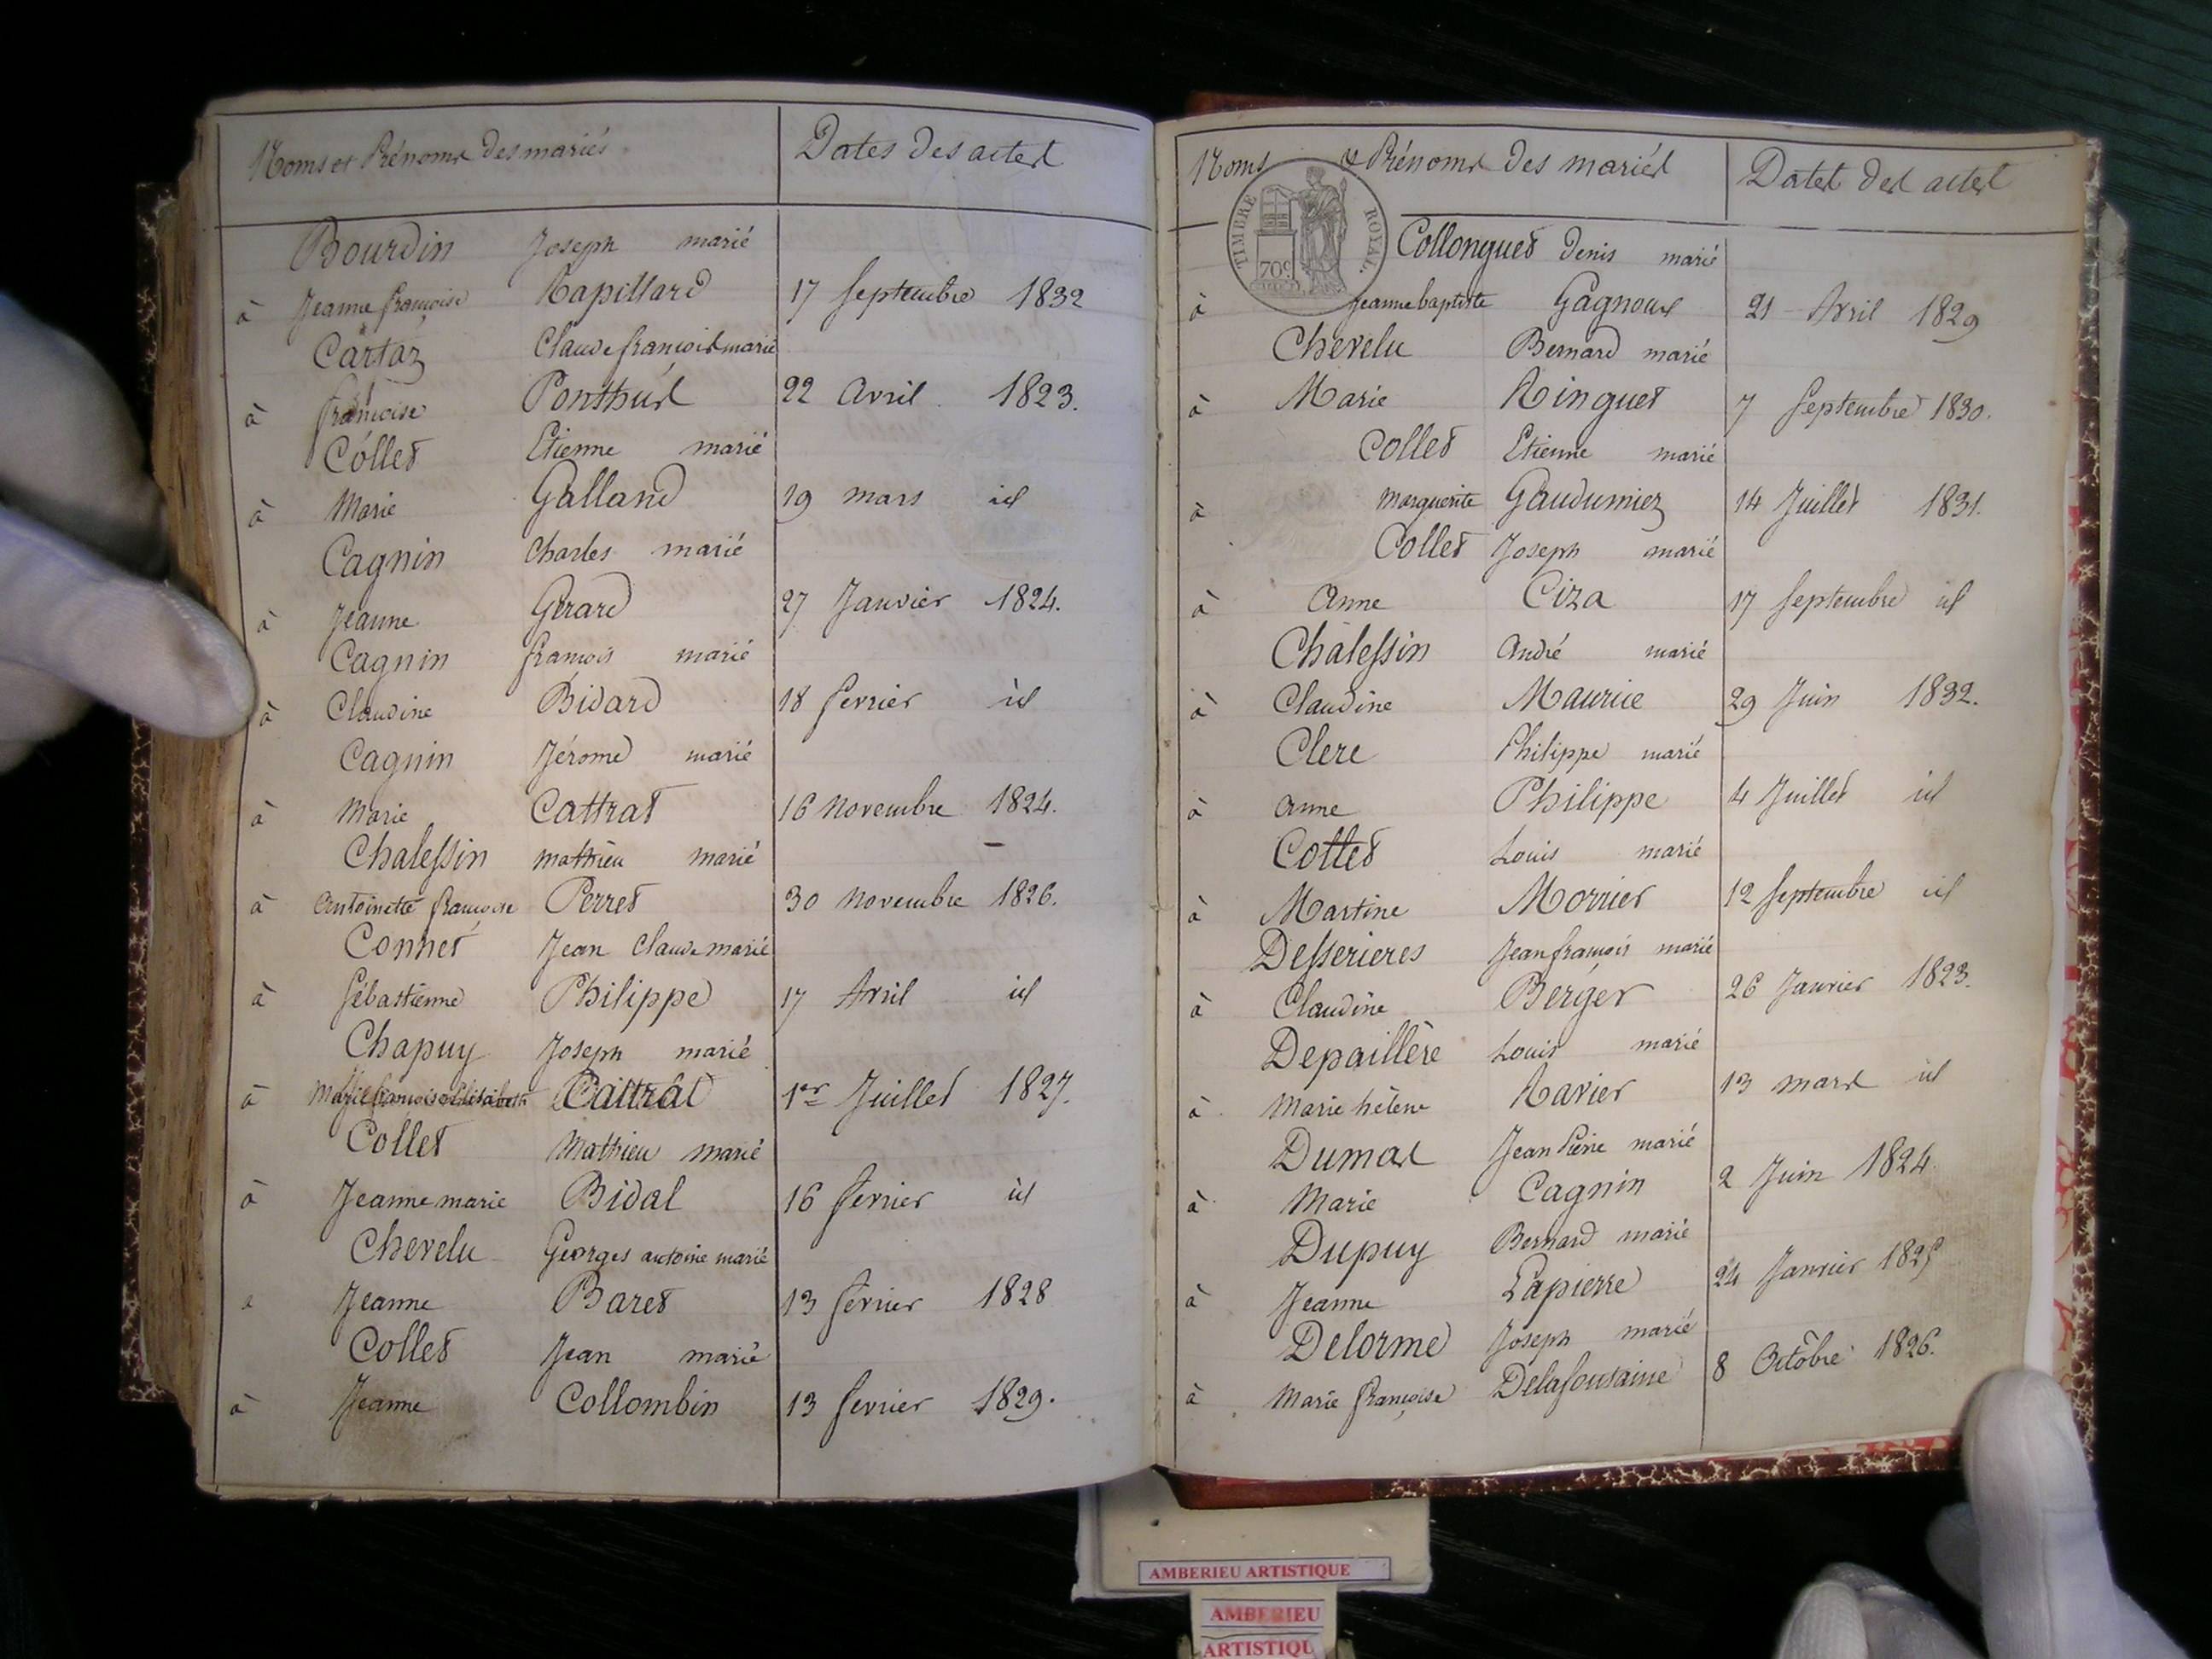 Noms et Prénoms des mariés Dates des actes
Bourdin Joseph marié
à Jeanne françoise Rapillard 17 Septembre 1832
Cartaz Claude françois marié
à françoise Ponthus 22 Avril 1823.
Collet Etienne marié
à Marie Galland 19 mars id
Cagnin Charles marié
à Jeanne Girard 27 Janvier 1824.
Cagnin françois marié
à Claudine Bidard 18 fevrier id
Cagnin Jérome marié
à Marie Cattrat 16 Novembre 1824.
Chalessin mathieu marié –
à Antoinette françoise Perret 30 Novembre 1826.
Connet Jean Claude marié
à Sébastienne Philippe 17 Avril id
Chapuy Joseph marié
à Marie françoise Elisabeth Cattrat 1er Juillet 1827.
Collet Mathieu marié
à Jeanne marie Bidal 16 fevrier id
Chevelu Georges antoine marié
a Jeanne Baret 13 fevrier 1828
Collet Jean marié
à Jeanne Collombin 13 fevrier 1829.
Noms & Prénoms des mariés Dates des actes
TIMBRE ROYAL.
70c
Collonguet Denis marié
à Jeanne baptiste Gagnoux 21 Avril 1829
Chevelu Bernard marié
à Marie Ringuet 7 Septembre 1830.
Collet Etienne marié
à Marguerite Gaudumiez 14 Juillet 1831.
Collet Joseph marié
à Anne Ciza 17 Septembre id
Chalessin André marié
à Claudine Maurice 29 Juin 1832.
Clerc Philippe marié
à anne Philippe 4 Juillet id
Cottet Louis marié
à Martine Morrier 12 Septembre id
Desserieres Jean françois marié
à Claudine Berger 26 Janvier 1823.
Depaillère Louis marié
à Marie hélène Ravier 13 mars id
Dumas Jean Pierre marié
à Marie Cagnin 2 Juin 1824
Dupuy Bernard marié
à Jeanne Lapierre 24 Janvier 1825
Delorme Joseph marié
à Marie françoise Delafontaine 8 Octobre 1826.
AMBERIEU ARTISTIQUE
AMBERIEU
ARTISTIQU